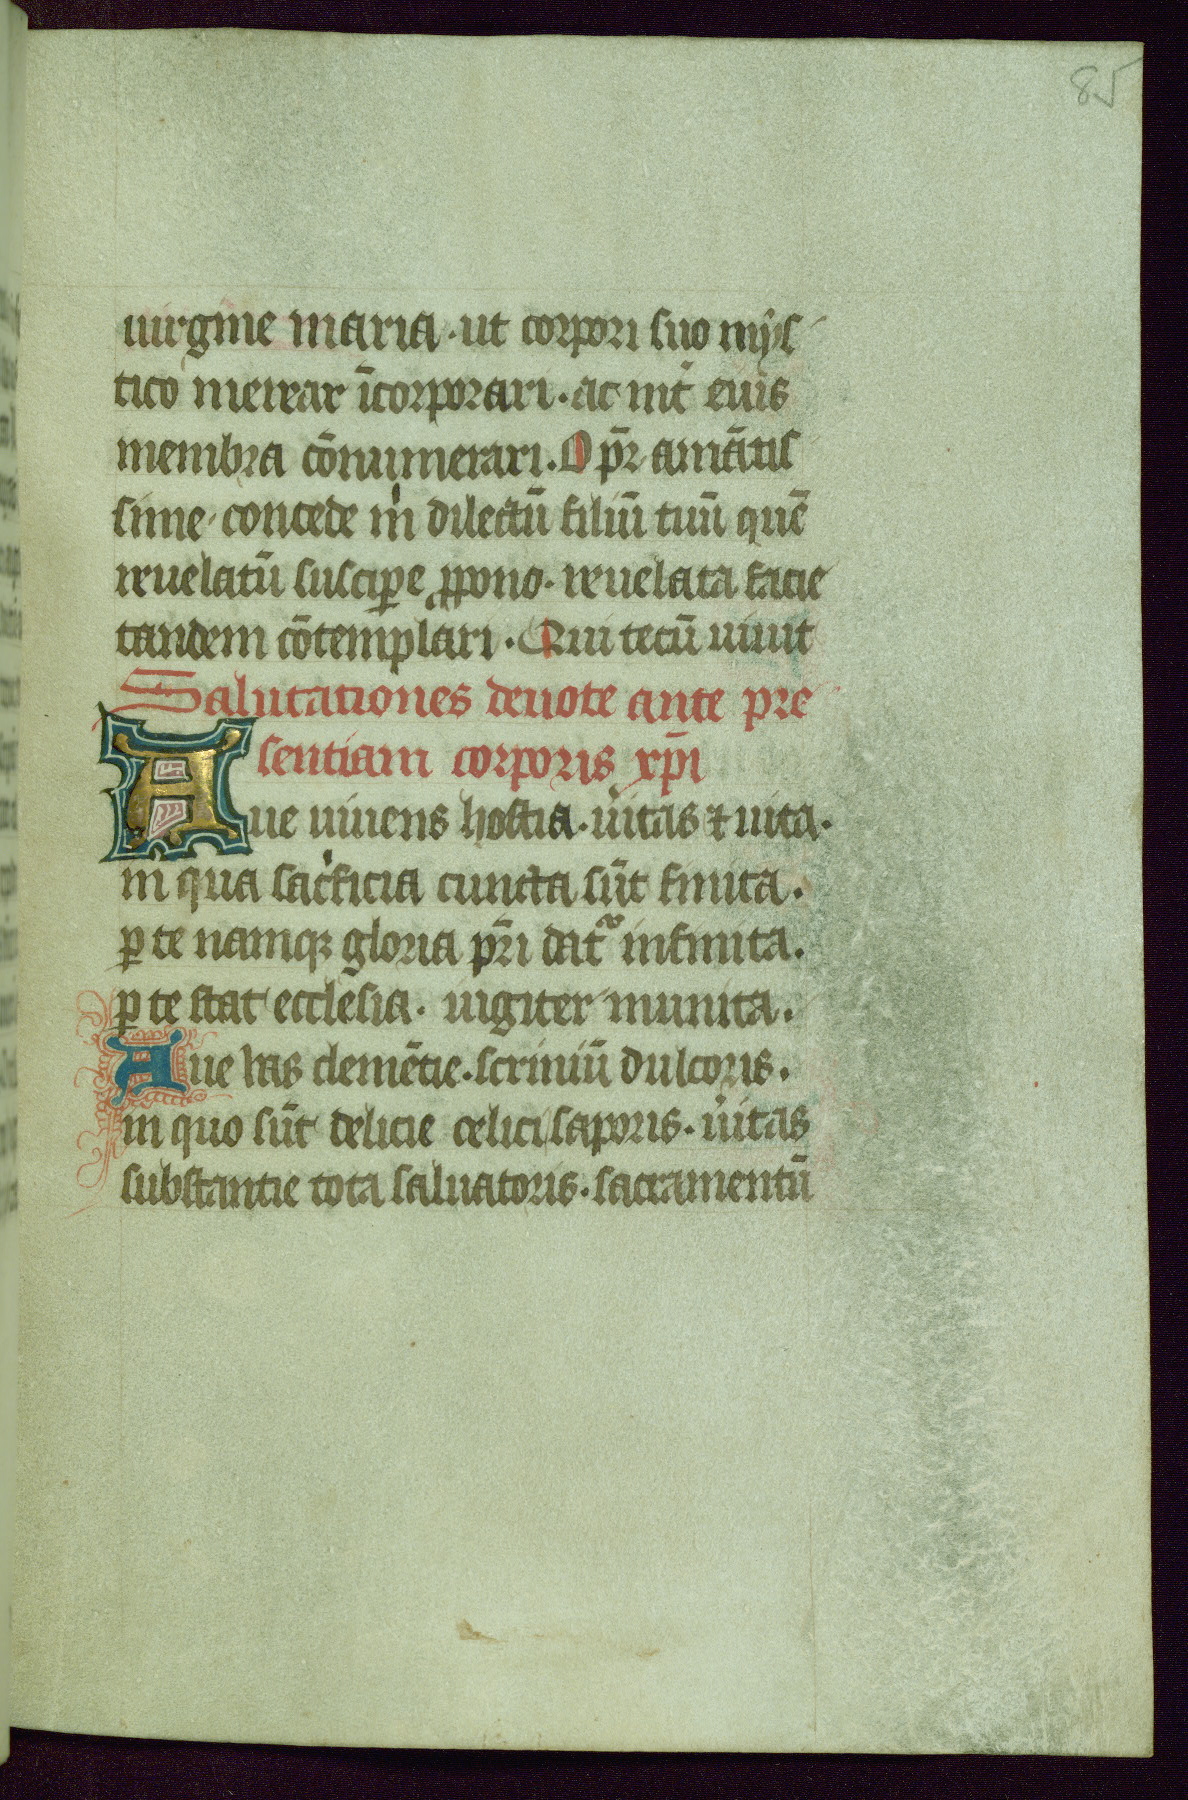 85
uirgine maria · ut corpori suo mÿs
tico merear īcorporari · ac int̾ eius
membra cōnumerari · O pr̄ amātis
sime · concede m̍ dilectū filiū tuū quē
reuelatū suscipe ꝓpono · reuelata facie
tandem cōtemplari · Qui tecū uiuit
Salutationes deuote ante pre
sentiam corporis xp̄i
Aue uiuens hostia · u̾itas ⁊ uita ·
in qua sac̍ficia cuncta sūt finita ·
ꝑ te namqꝫ gloria pr̄i dat᷑ infinita ·
ꝑ te stat ecclesia · iugiter munita ·
Aue uas clemētie · scriniū dulcoris ·
in quo sūt delicie celici saporis · u̾itas
substantie tota saluatoris · sacramentū